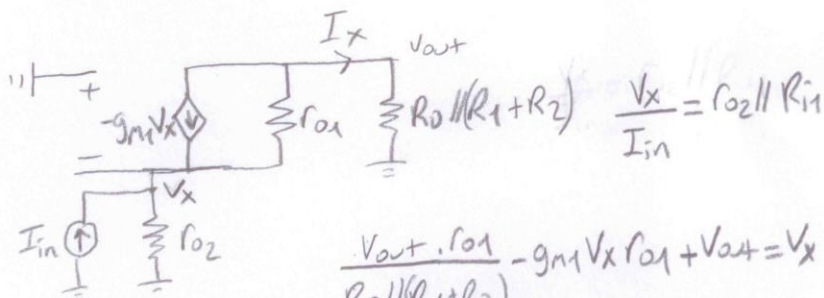 Ix
Vout
+
-gm1Vx
ro1
R0//(R1+R2)
Vx/Iin = ro2//Ri1
−
Vx
Iin
ro2
Vout.ro1/R0//(R1+R2) - gm1Vx ro1 + Vout = Vx